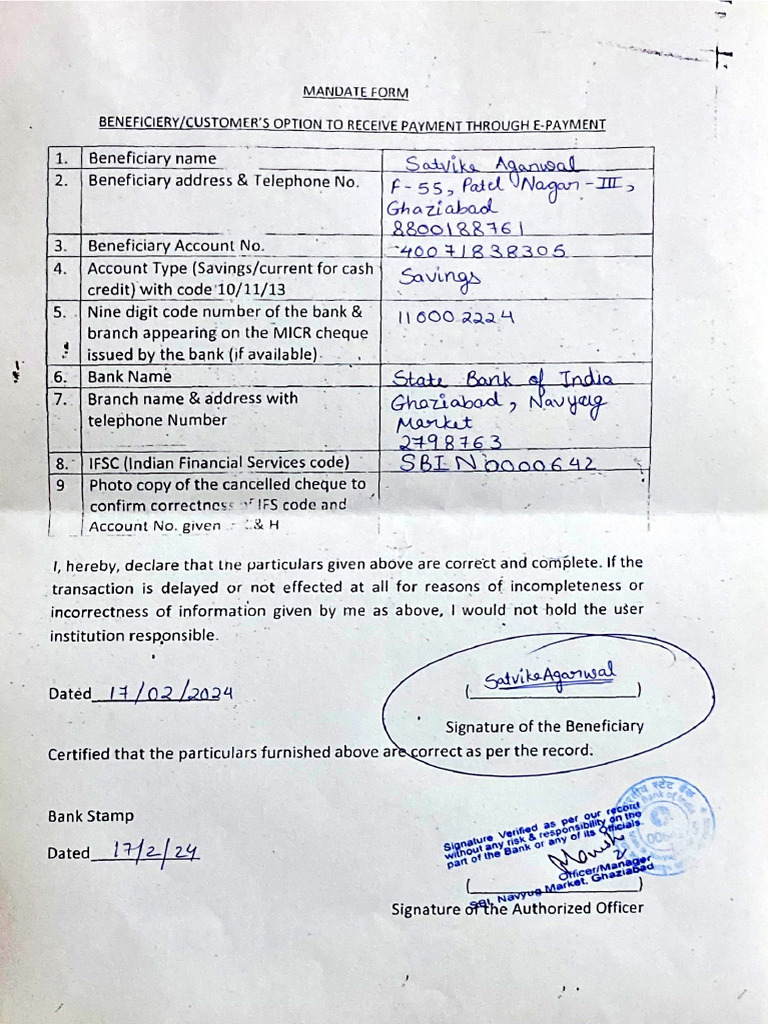 MANDATE FORM
BENEFICIERY/CUSTOMER'S OPTION TO RECEIVE PAYMENT THROUGH E-PAYMENT
1. Beneficiary name Satvike Agarwal
2. Beneficiary address & Telephone No. F-55, Patel Nagar-III,
Ghaziabad
8800188761
3. Beneficiary Account No. 40071838305
4. Account Type (Savings/current for cash Savings
credit) with code 10/11/13
5. Nine digit code number of the bank & 110002224
branch appearing on the MICR cheque
issued by the bank (if available)
6. Bank Name State Bank of India
7. Branch name & address with Ghaziabad, Navyug
telephone Number Market
2798763
8. IFSC (Indian Financial Services code) SBIN0000642
9 Photo copy of the cancelled cheque to
confirm correctness of IFS code and
Account No. given & H
I, hereby, declare that the particulars given above are correct and complete. If the
transaction is delayed or not effected at all for reasons of incompleteness or
incorrectness of information given by me as above, I would not hold the user
institution responsible.
Satvike Agarwal
Dated 17/02/2024 ( )
Signature of the Beneficiary
Certified that the particulars furnished above are correct as per the record.
Bank Stamp
भारतीय स्टेट बैंक
Bank of India
Signature Verified as per our record
without any risk & responsibility on the
part of the Bank or any of its Officials.
Dated 17/2/24
Manish
Officer/Manager
SBI, Navyug Market, Ghaziabad
( )
Signature of the Authorized Officer